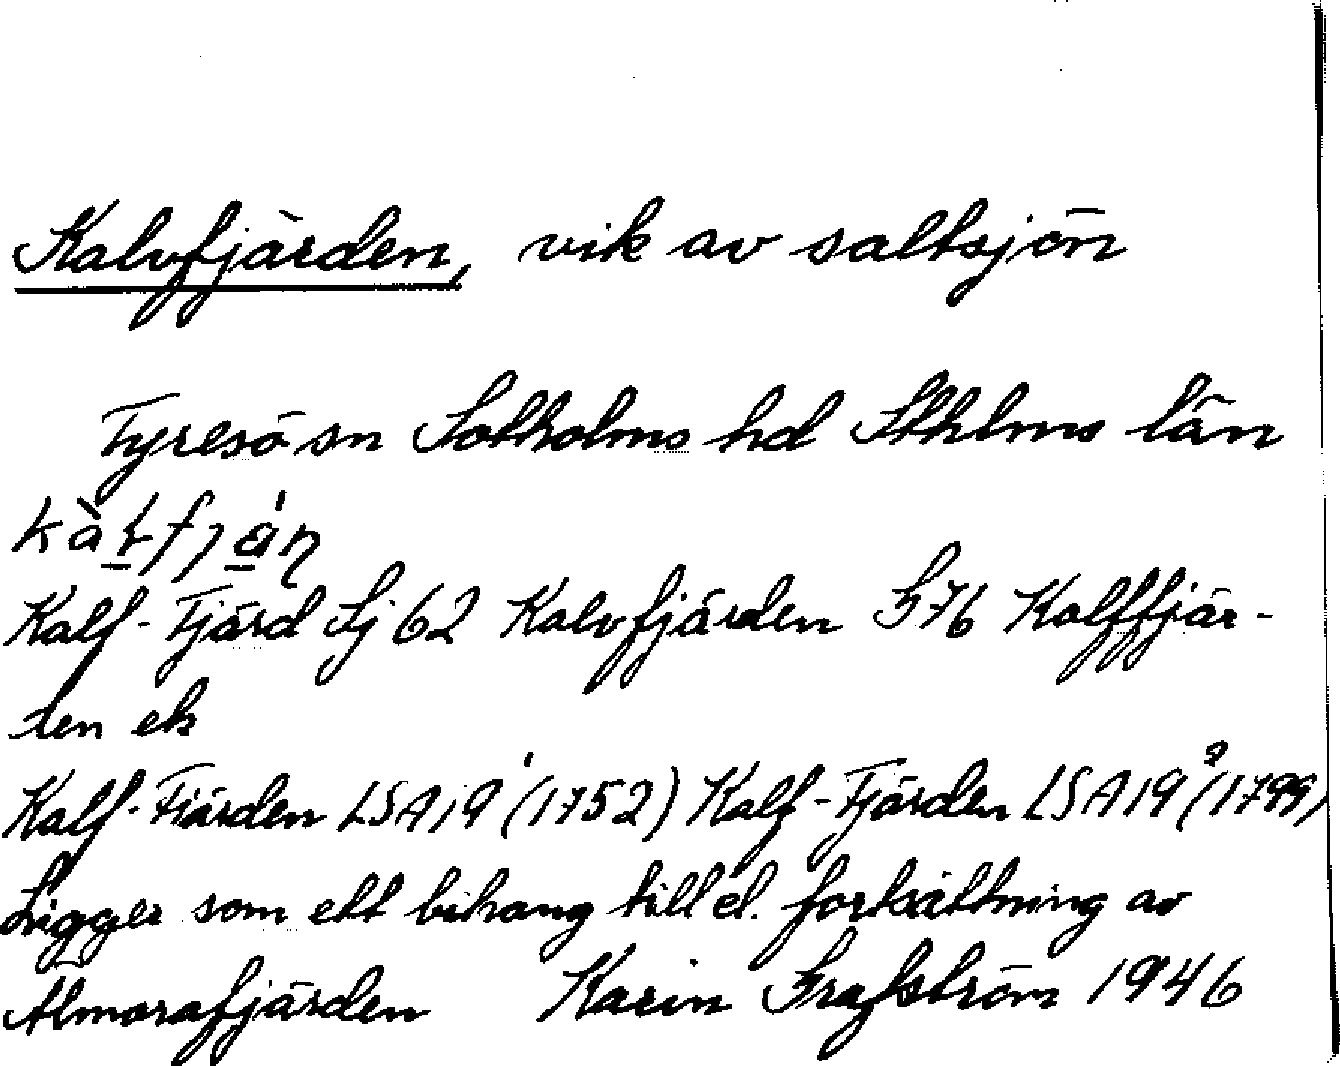 Kalvfjärden, vik av saltsjön
Tyresö sn Sotholms hd Sthlms län
Kalf-Fjärd Lj 62 Kalvfjärden G 76 Kalffjär-
den ek
Kalf-Fiärden LSA 19¹ (1752) Kalf-Fjärden LSA 19² (1799)
Ligger som ett bihang till el. fortsättning av
Ålmorafjärden Karin Grafström 1946